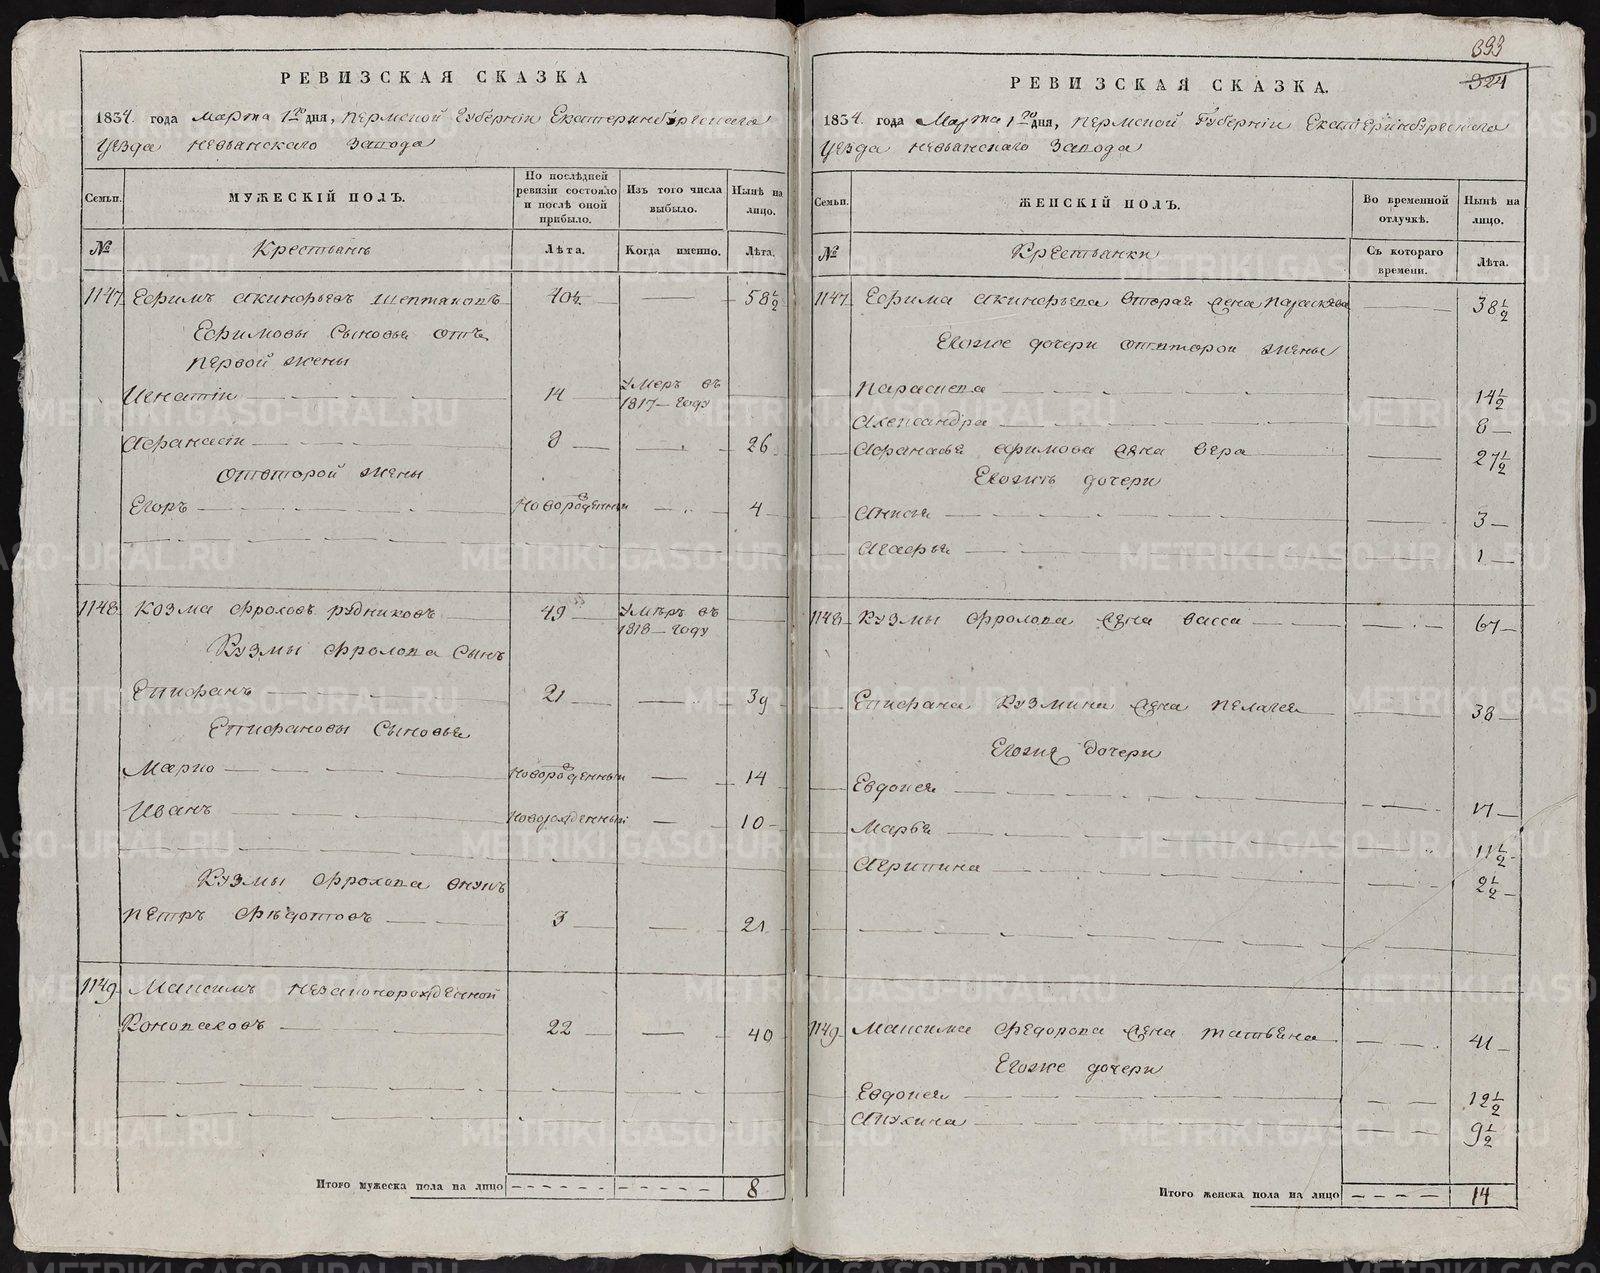 РЕВИЗСКАЯ СКАЗКА
1834. года Марта 1го дня, Пермской Губернiи Екатеринбургскаго
Уезда Невьянскаго Завода
Семьи. МУЖЕСКIЙ ПОЛЪ. По послѣдней ревизiи состояло и послѣ оной прибыло. Изъ того числа выбыло. Нынѣ на лицо.
№ Крестьянъ Лѣта. Когда именно. Лѣта.
1147 Ефимъ Акинфьевъ 40½ 58½
Ефимовы Сыновья отъ
первой жены
Игнатiи 14 Умеръ въ 1817 году
Афанасiи 8 26
отвторой жены
Егоръ Новорожденныи 4
1148 Козма Фроловъ Рудниковъ 49 Умѣръ въ 1818 году
Кузмы Фролова Сынъ
Епифанъ 21 39
Епифановы Сыновья
Марко Новорожденныи 14
Иванъ Новорожденныи 10
Кузмы Фролова внукъ
Петръ Фѣдотовъ 3 21
1149 Максимъ незаконорожденной
Коноваловъ 22 40
Итого мужеска пола на лицо 8
393
324
РЕВИЗСКАЯ СКАЗКА.
1834. года Марта 1го дня, Пермской Губернiи Екатеринбургскаго
Уезда Невьянскаго Завода
Семьи. ЖЕНСКIЙ ПОЛЪ. Во временной отлучкѣ. Нынѣ на лицо.
№ Крестьянки Съ котораго времени. Лѣта.
1147 Ефима Акинфьева вторая жена Параскевья 38½
Егоже дочери отвторой жены
Параскева 14½
Александра 8
Афанасья Ефимова жена Вера 27½
Егожъ дочери
Анисья 3
Агафья 1
1148 Кузмы Фролова жена Васса 67
Епифана Кузмина жена Пелагея 38
Егоже дочери
Евдокея 17
Марья 11½
Агрипина 2½
1149 Максима Федорова жена Татьяна 41
Егоже дочери
Евдокея 12½
Акулина 9½
Итого женска пола на лицо 14
METRIKI.GASO-URAL.RU